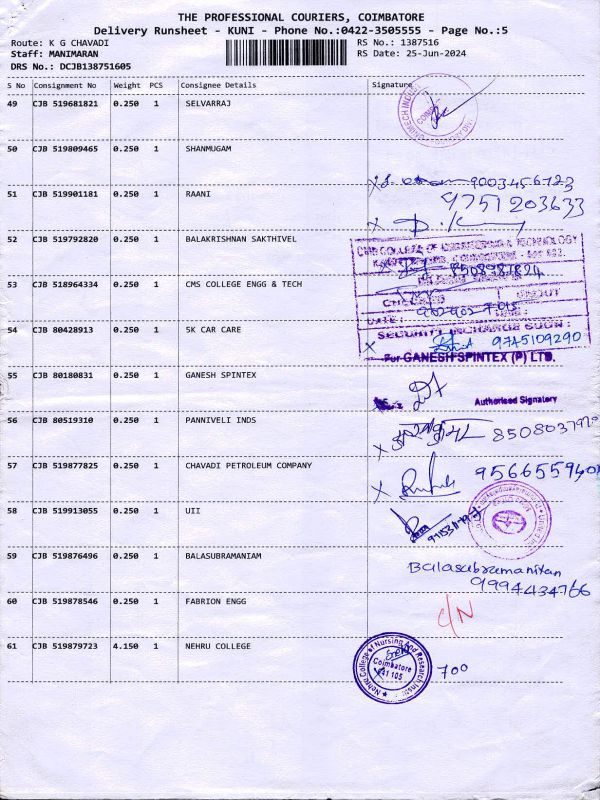 THE PROFESSIONAL COURIERS, COIMBATORE
Delivery Runsheet - KUNI - Phone No.:0422-3505555 - Page No.:5
Route: K G CHAVADI RS No.: 1387516
Staff: MANIMARAN RS Date: 25-Jun-2024
DRS No.: DCJB138751605
S No Consignment No Weight PCS Consignee Details Signature
49 CJB 519681821 0.250 1 SELVARRAJ
50 CJB 519809465 0.250 1 SHANMUGAM
9003456723
51 CJB 519901181 0.250 1 RAANI
9751203633
52 CJB 519792820 0.250 1 BALAKRISHNAN SAKTHIVEL
COLLEGE OF ENGINEERING & TECHNOLOGY
53 CJB 518964334 0.250 1 CMS COLLEGE ENGG & TECH
DATE :
SECURITY INCHARGE SIGN :
54 CJB 80428913 0.250 1 5K CAR CARE
9745109290
For GANESH SPINTEX (P) LTD.
55 CJB 80180831 0.250 1 GANESH SPINTEX
Authorised Signatory
56 CJB 80519310 0.250 1 PANNIVELI INDS
57 CJB 519877825 0.250 1 CHAVADI PETROLEUM COMPANY
58 CJB 519913055 0.250 1 UII
59 CJB 519876496 0.250 1 BALASUBRAMANIAM
Balasubramaniyan
9994434766
60 CJB 519878546 0.250 1 FABRION ENGG
C/N
61 CJB 519879723 4.150 1 NEHRU COLLEGE
Nehru College of Nursing and Research Insti
Coimbatore
641 105
700